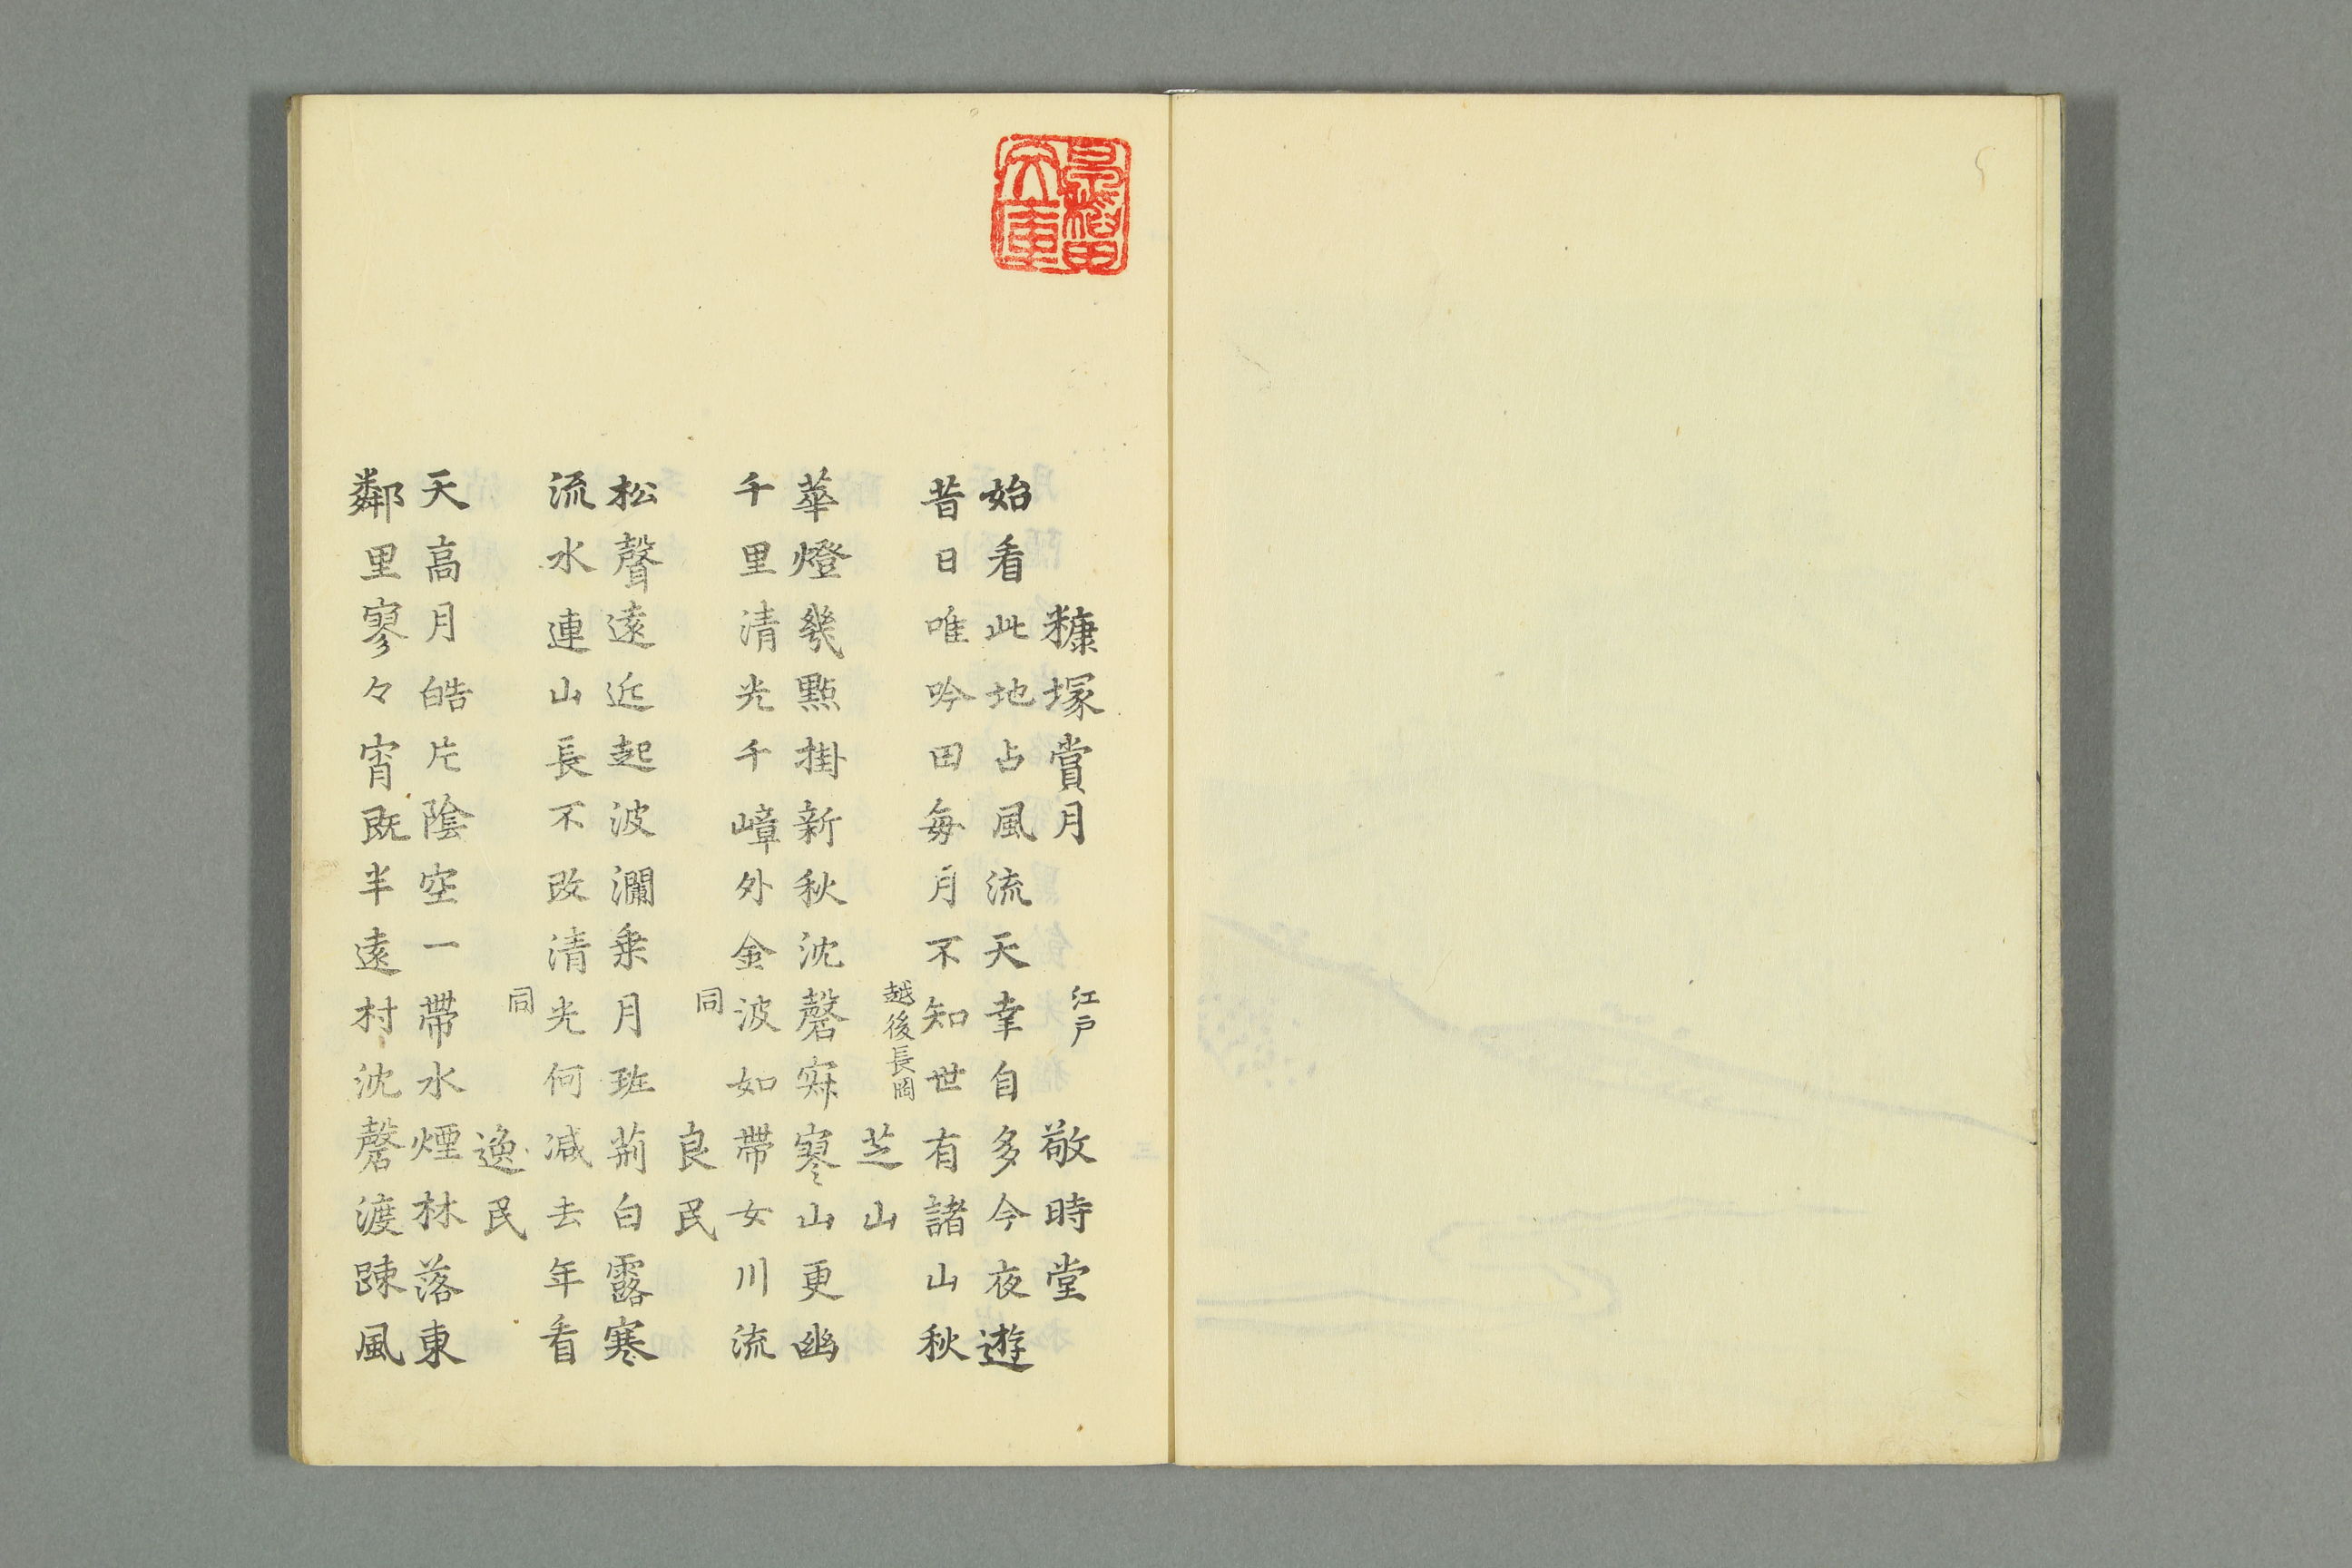 糠塚賞月 江戸 敬時堂
始看此地占風流天幸自多今夜遊
昔日唯吟田毎月不知世有諸山秋
越後長岡 芝山
華燈幾點掛新秋沈磬寂寥山更幽
千里清光千嶂外金波如帶女川流
同 良民
松聲遠近起波瀾乗月班荊白露寒
流水連山長不改清光何減去年看
同 逸民
天高月皓片陰空一帶水煙林落東
鄰里寥々宵既半遠村沈磬渡踈風
文庫